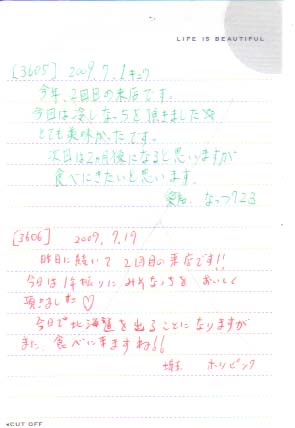 LIFE IS BEAUTIFUL
[3605] 2009.7.1
今年、2回目の来店です。
今回は冷しなっちを頂きました☆
とても美味かったです。
次回は2ヶ月後になると思いますが
食べにきたいと思います。
なっつ723
[3606] 2009.7.19
昨日に続いて2回目の来店です!!
今日は1年振りにみそなっちをおいしく
頂きました♡
今日で北海道を出ることになりますが
また、食べに来ますね!!
埼玉 ホリピンク
◂CUT OFF